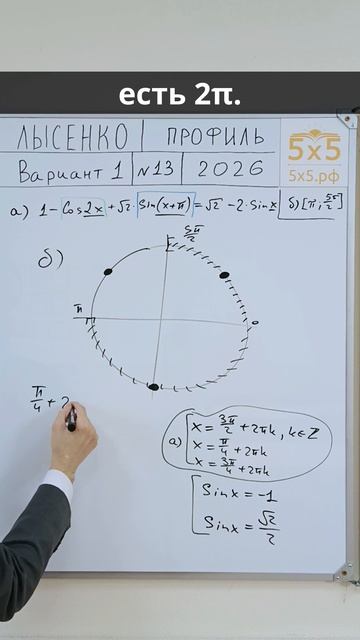 есть 2π.
ЛЫСЕНКО ПРОФИЛЬ
5×5
Вариант 1 №13 2026
5x5.рф
а) 1 - Cos2x + √2 · Sin(x+π) = √2 - 2·Sinx б) [π; 5π/2]
б)
5π/2
π
0
π/4 + 2
а) x = 3π/2 + 2πk, k∈ℤ
x = π/4 + 2πk
x = 3π/4 + 2πk
Sinx = -1
Sinx = √2/2